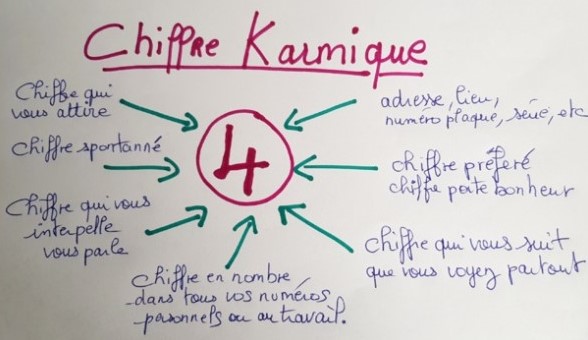 Chiffre Karmique
Chiffre qui
vous attire
adresse, lieu,
numéro plaque, série, etc
Chiffre spontanné
4
chiffre préféré
chiffre porte bonheur
Chiffre qui vous
interpelle
vous parle
chiffre qui vous suit
que vous voyez partout
chiffre en nombre
dans tous vos numéros
personnels ou au travail.